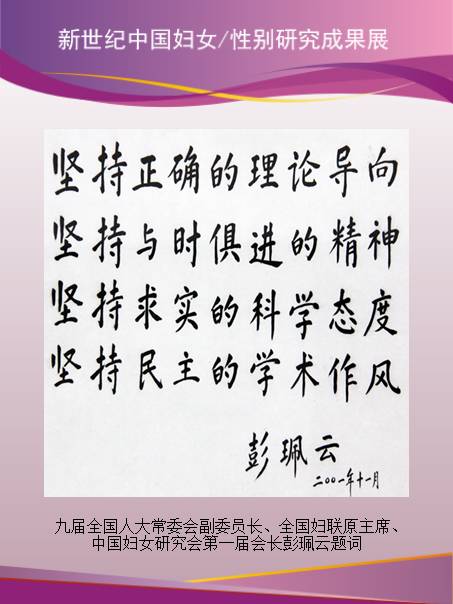 新世纪中国妇女/性别研究成果展
坚持正确的理论导向
坚持与时俱进的精神
坚持求实的科学态度
坚持民主的学术作风
彭珮云
二〇〇一年十一月
九届全国人大常委会副委员长、全国妇联原主席、
中国妇女研究会第一届会长彭珮云题词